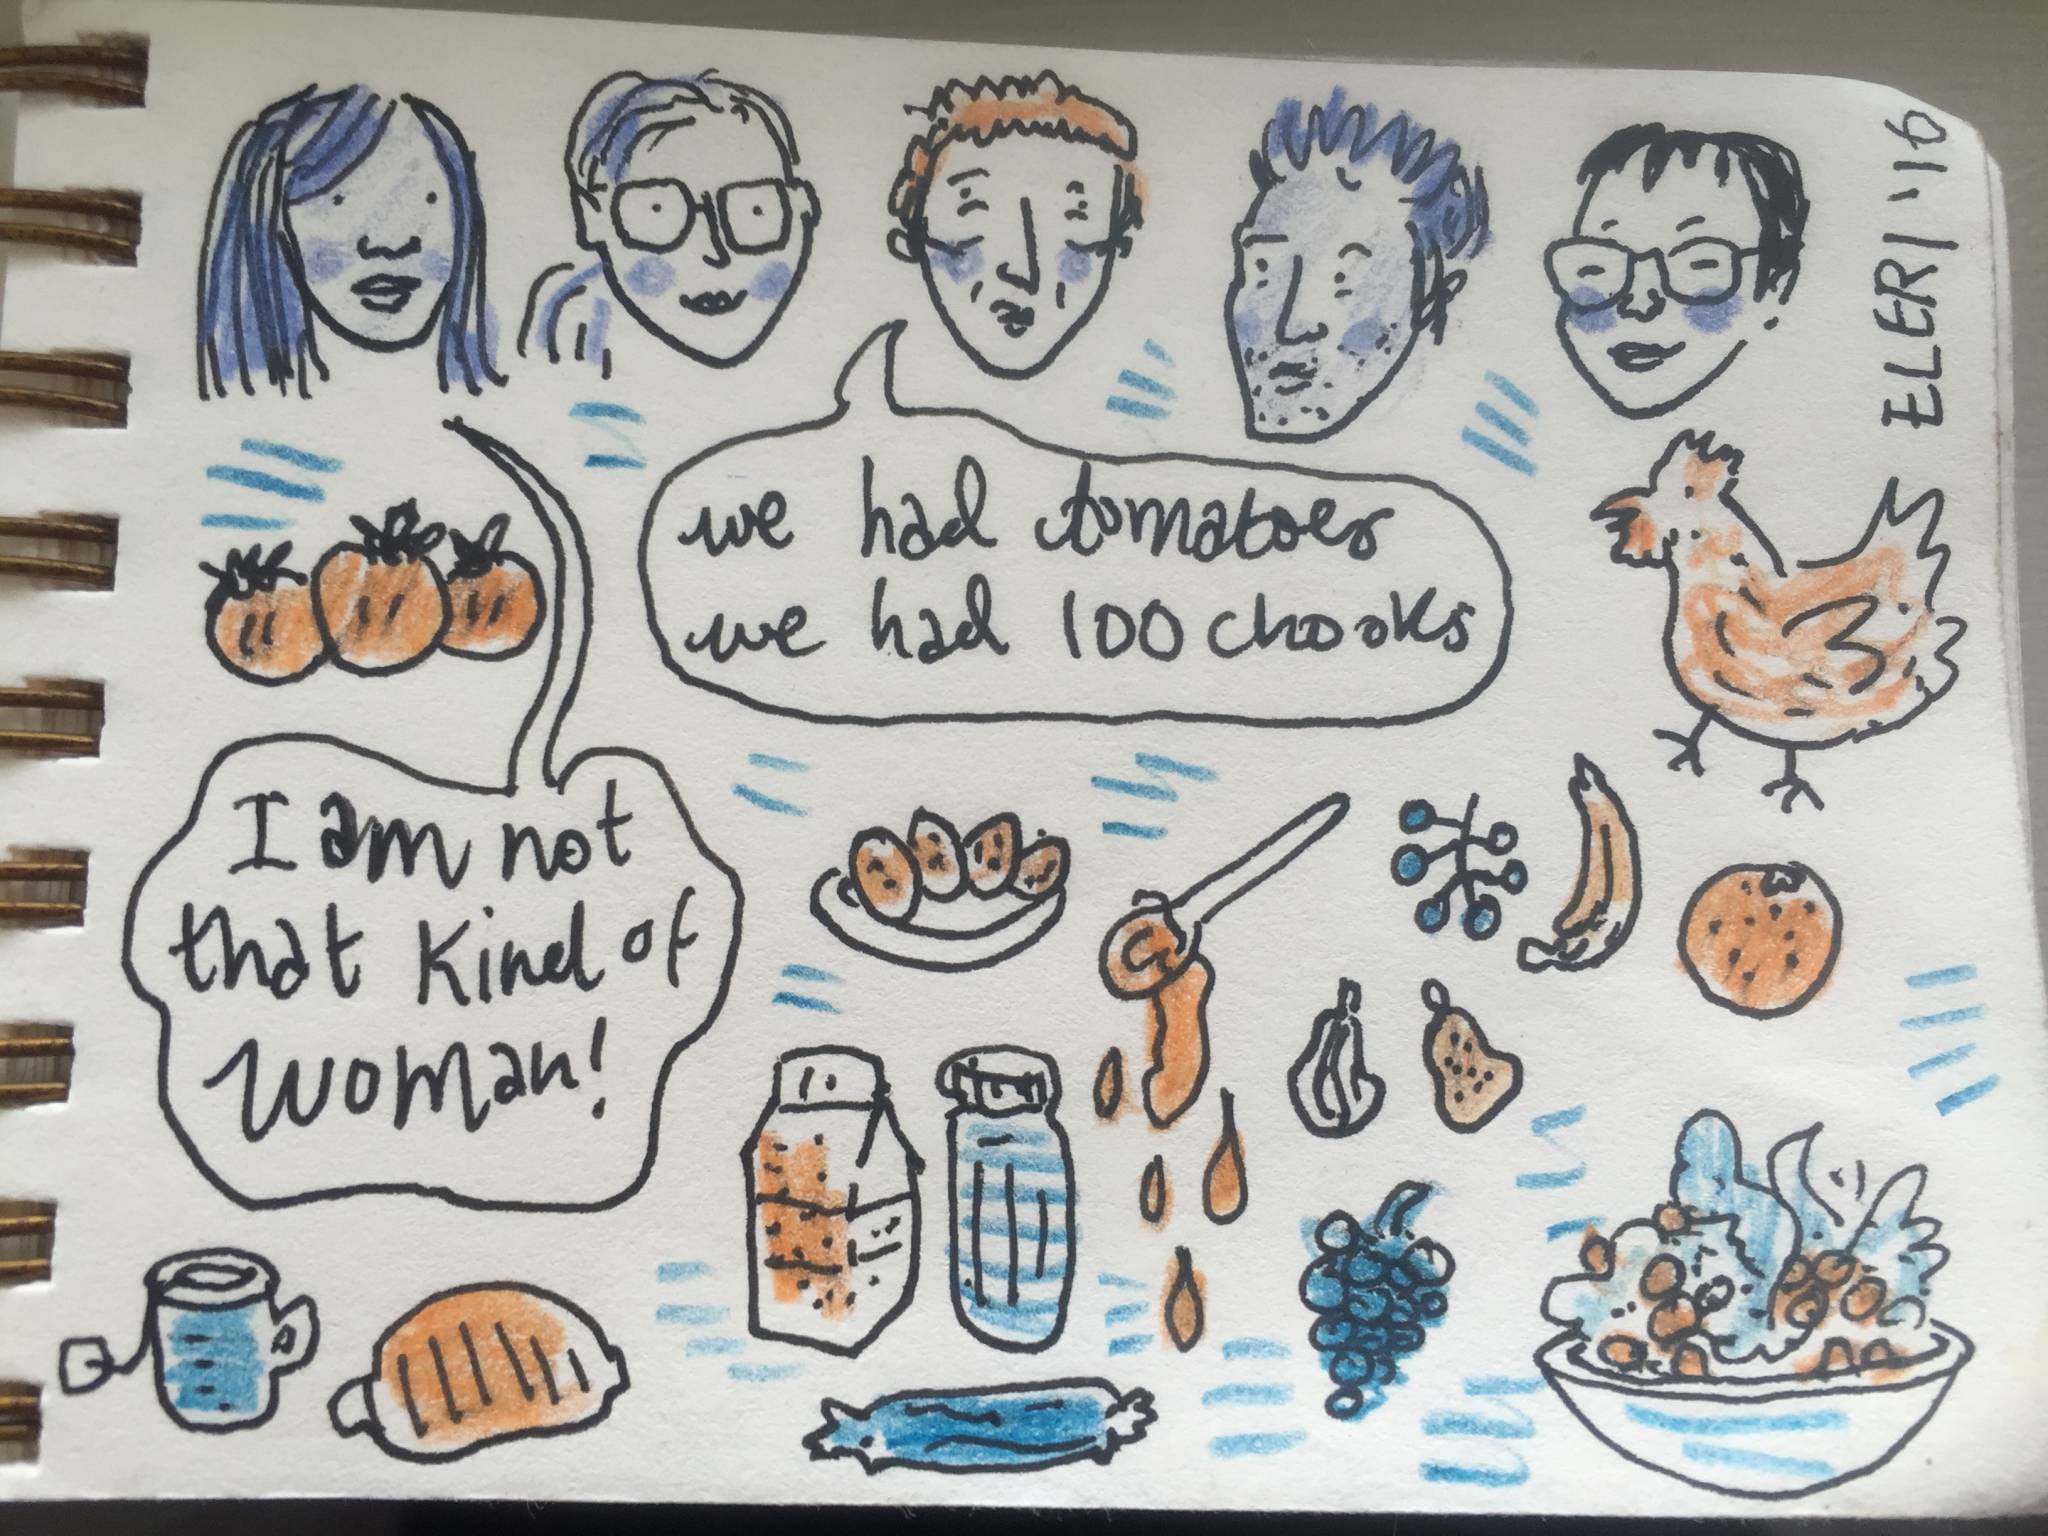 ELERI '16
we had tomatoes
we had 100 chooks
I am not
that kind of
woman!